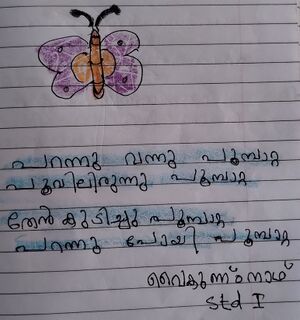 പറന്നു വന്നു പൂമ്പാറ്റ
പൂവിലിരുന്നു പൂമ്പാറ്റ
തേൻ കുടിച്ചു പൂമ്പാറ്റ
പറന്നു പോയി പൂമ്പാറ്റ
വൈകുണ്ഠ് നാഥ്
std I